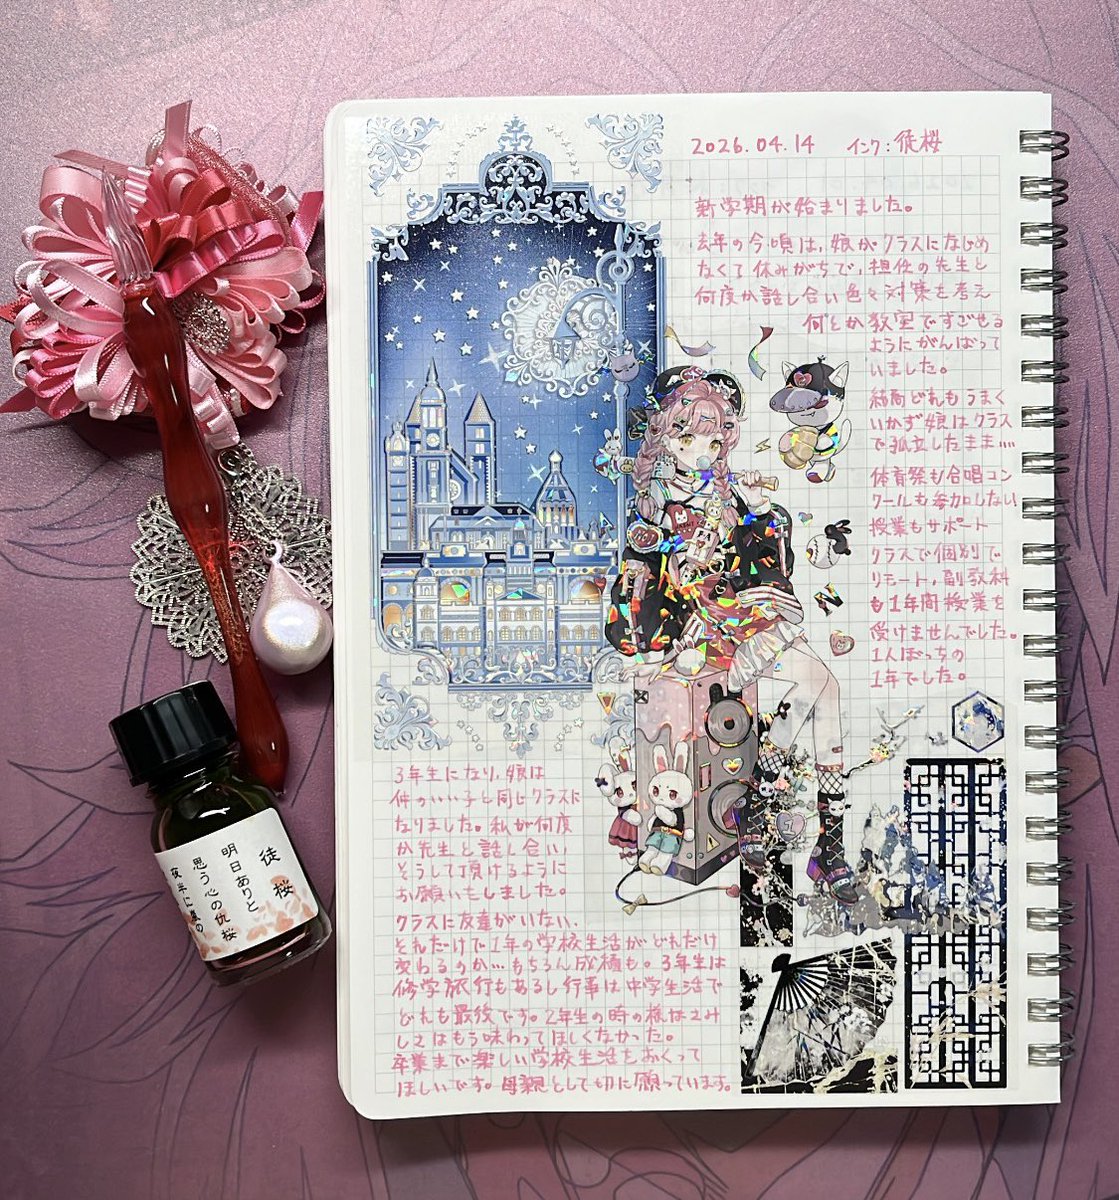 2026.04.14 インク:徒桜
新学期が始まりました。
去年の今頃は、娘がクラスになじめ
なくて休みがちで、担任の先生と
何度か話し合い色々対策を考え
何とか教室ですごせる
ようにがんばって
いました。
結局どれもうまく
いかず娘はクラス
で孤立したまま…
体育祭も合唱コン
クールも参加しない
授業もサポート
クラスで個別で
リモート、副教科
も1年間授業を
受けませんでした。
1人ぼっちの
1年でした。
3年生になり、娘は
仲のいい子と同じクラスに
なりました。私が何度
か先生と話し合い、
そうして頂けるように
お願いをしました。
クラスに友達がいない、
それだけで1年の学校生活がどれだけ
変わるのか…もちろん成績も。3年生は
修学旅行もあるし行事は中学生活で
どれも最後です。2年生の時の様な
はもう味わってほしくなかった。
卒業まで楽しい学校生活をおくって
ほしいです。母親として切に願っています。
徒桜
明日ありと
思う心の仇桜
夜半に嵐の